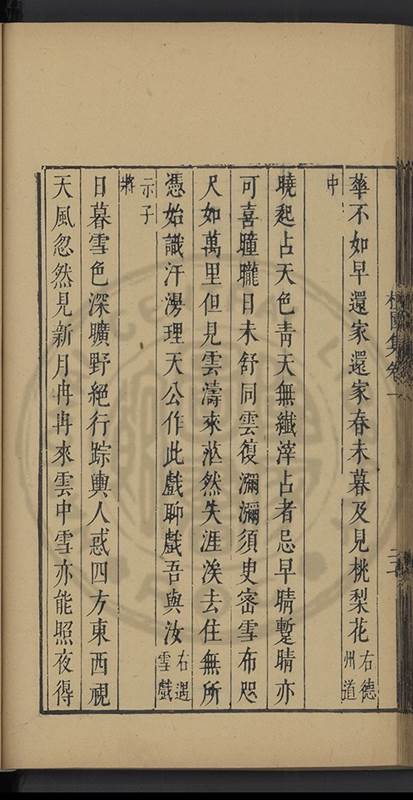 華不如早還家還家春未暮及見桃梨花右德州道
中
曉起占天色青天無纖滓占者忌早晴蹔晴亦
可喜瞳曨日未舒同雲復瀰瀰須史密雪布咫
尺如萬里但見雲濤來茫然失涯涘去住無所
憑始識汗漫理天公作此戲聊戲吾與汝右遇雪戲
示子
將
日暮雪色深曠野絕行踪輿人惑四方東西視
天風忽然見新月冉冉來雲中雪亦能照夜得
集卷一